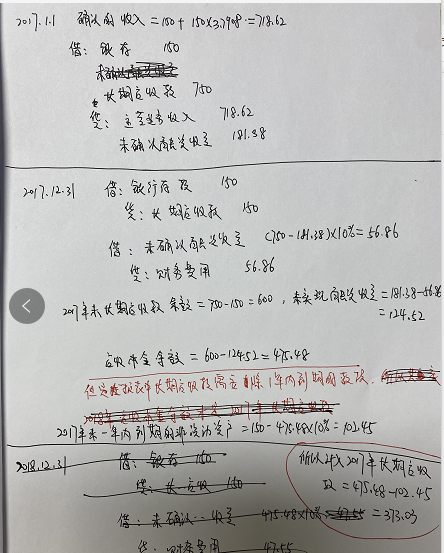 2017.1.1 确认的收入 = 150 + 150×3.7908 = 718.62
借: 银存 150
长期应收款 750
贷: 主营业务收入 718.62
未确认融资收益 181.38
2017.12.31 借: 银行存款 150
贷: 长期应收款 150
借: 未确认融资收益 (750-181.38)×10% = 56.86
贷: 财务费用 56.86
2017年末长期应收款余额 = 750-150 = 600, 未实现融资收益 = 181.38-56.86
= 124.52
应收本金余额 = 600-124.52 = 475.48
但是报表中长期应收款需应扣除1年内到期的款项.
2017年末一年内到期的非流动资产 = 150-475.48×10% = 102.45
2018.12.31 借: 银存 150
贷: 长期应收 150
所以计入2017年长期应收
款 = 475.48-102.45
= 373.03
借: 未确认…收益 475.48×10% = 47.55
贷: 财务费用 47.55